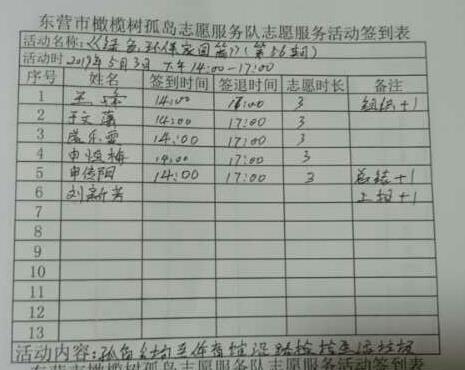 东营市橄榄树孤岛志愿服务队志愿服务活动签到表
活动名称：《绿色环保家园篇》（第56期）
活动时 2019年5月3日 下午14:00-17:00
序号 姓名 签到时间 签退时间 志愿时长 备注
1 14:00 17:00 3 组织+1
2 于文 14:00 17:00 3
3 乐雪 14:00 17:00 3
4 申 梅 14:00 17:00 3
5 申传阳 14:00 17:00 3 总结+1
6 刘新芳 上报+1
7
8
9
10
11
12
13
活动内容：孤岛
东营市橄榄树孤岛志愿服务队志愿服务活动签到表